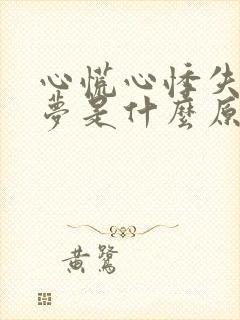 心慌心悸失
夢是什麼原
黄鷺